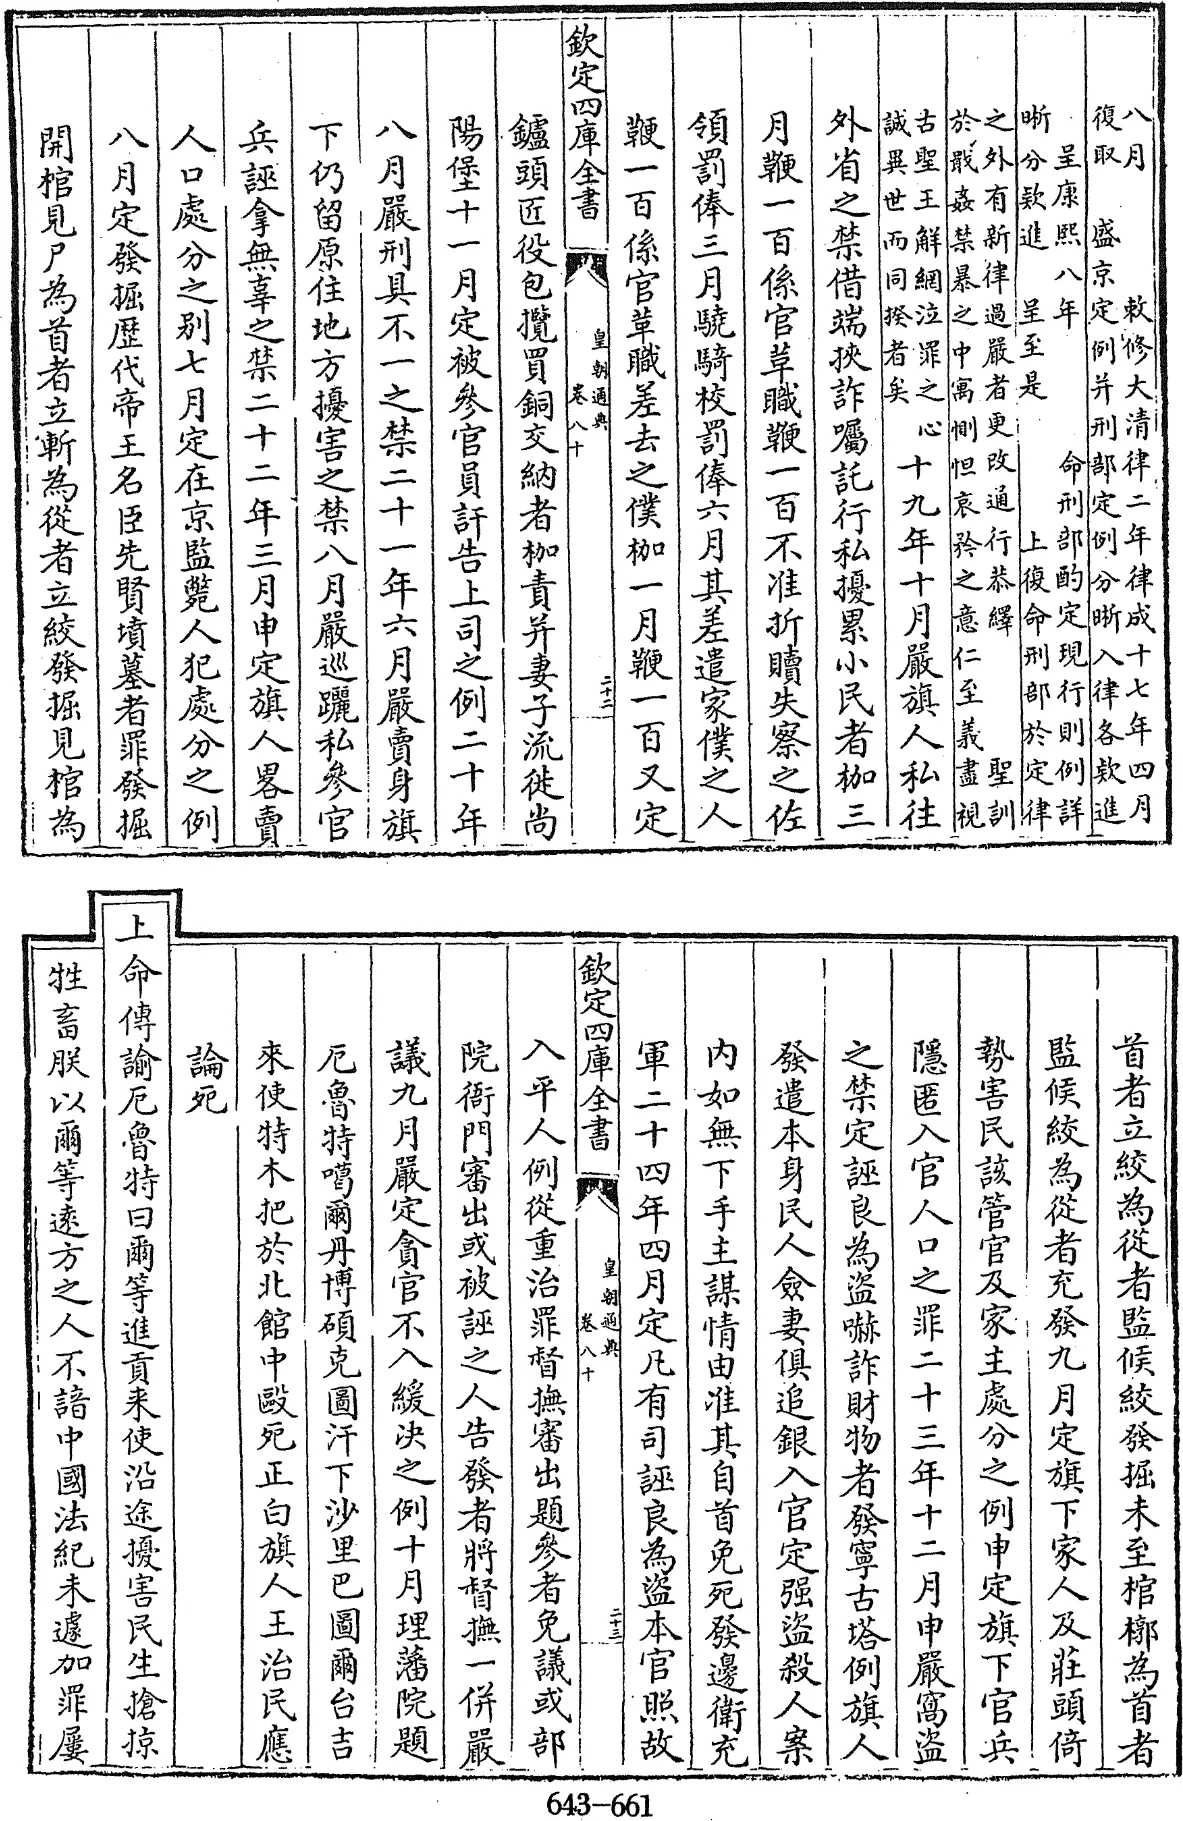 八月　敕修大清律二年律成十七年四月
復取　盛京定例并刑部定例分晰入律各款進
呈康熙八年　命刑部酌定現行則例詳
晰分款進　呈至是　上復命刑部於定律
之外有新律過嚴者更改通行恭繹　聖訓
於戢姦禁暴之中寓惻怛哀矜之意仁至義盡視
古聖王解網泣罪之心
誠異世而同揆者矣
十九年十月嚴旗人私往
外省之禁借端挾詐囑託行私擾累小民者枷三
月鞭一百係官革職鞭一百不准折贖失察之佐
領罰俸三月驍騎校罰俸六月其差遣家僕之人
鞭一百係官革職差去之僕枷一月鞭一百又定
欽定四庫全書
皇朝通典
卷八十
二十二
鑪頭匠役包攬買銅交納者枷責并妻子流徙尚
陽堡十一月定被參官員訐告上司之例二十年
八月嚴刑具不一之禁二十一年六月嚴賣身旗
下仍留原住地方擾害之禁八月嚴巡躧私參官
兵誣拿無辜之禁二十二年三月申定旗人畧賣
人口處分之别七月定在京監斃人犯處分之例
八月定發掘歷代帝王名臣先賢墳墓者罪發掘
開棺見尸為首者立斬為從者立絞發掘見棺為
首者立絞為從者監候絞發掘未至棺槨為首者
監候絞為從者充發九月定旗下家人及莊頭倚
勢害民該管官及家主處分之例申定旗下官兵
隱匿入官人口之罪二十三年十二月申嚴窩盜
之禁定誣良為盜嚇詐財物者發寧古塔例旗人
發遣本身民人僉妻俱追銀入官定强盜殺人案
内如無下手主謀情由准其自首免死發邊衛充
軍二十四年四月定凡有司誣良為盜本官照故
欽定四庫全書
皇朝通典
卷八十
二十三
入平人例從重治罪督撫審出題參者免議或部
院衙門審出或被誣之人告發者將督撫一併嚴
議九月嚴定貪官不入緩決之例十月理藩院題
厄魯特噶爾丹博碩克圖汗下沙里巴圖爾台吉
來使特木把於北館中毆死正白旗人王治民應
論死
上命傳諭厄魯特曰爾等進貢来使沿途擾害民生搶掠
牲畜朕以爾等遠方之人不諳中國法紀未遽加罪屢
643-661